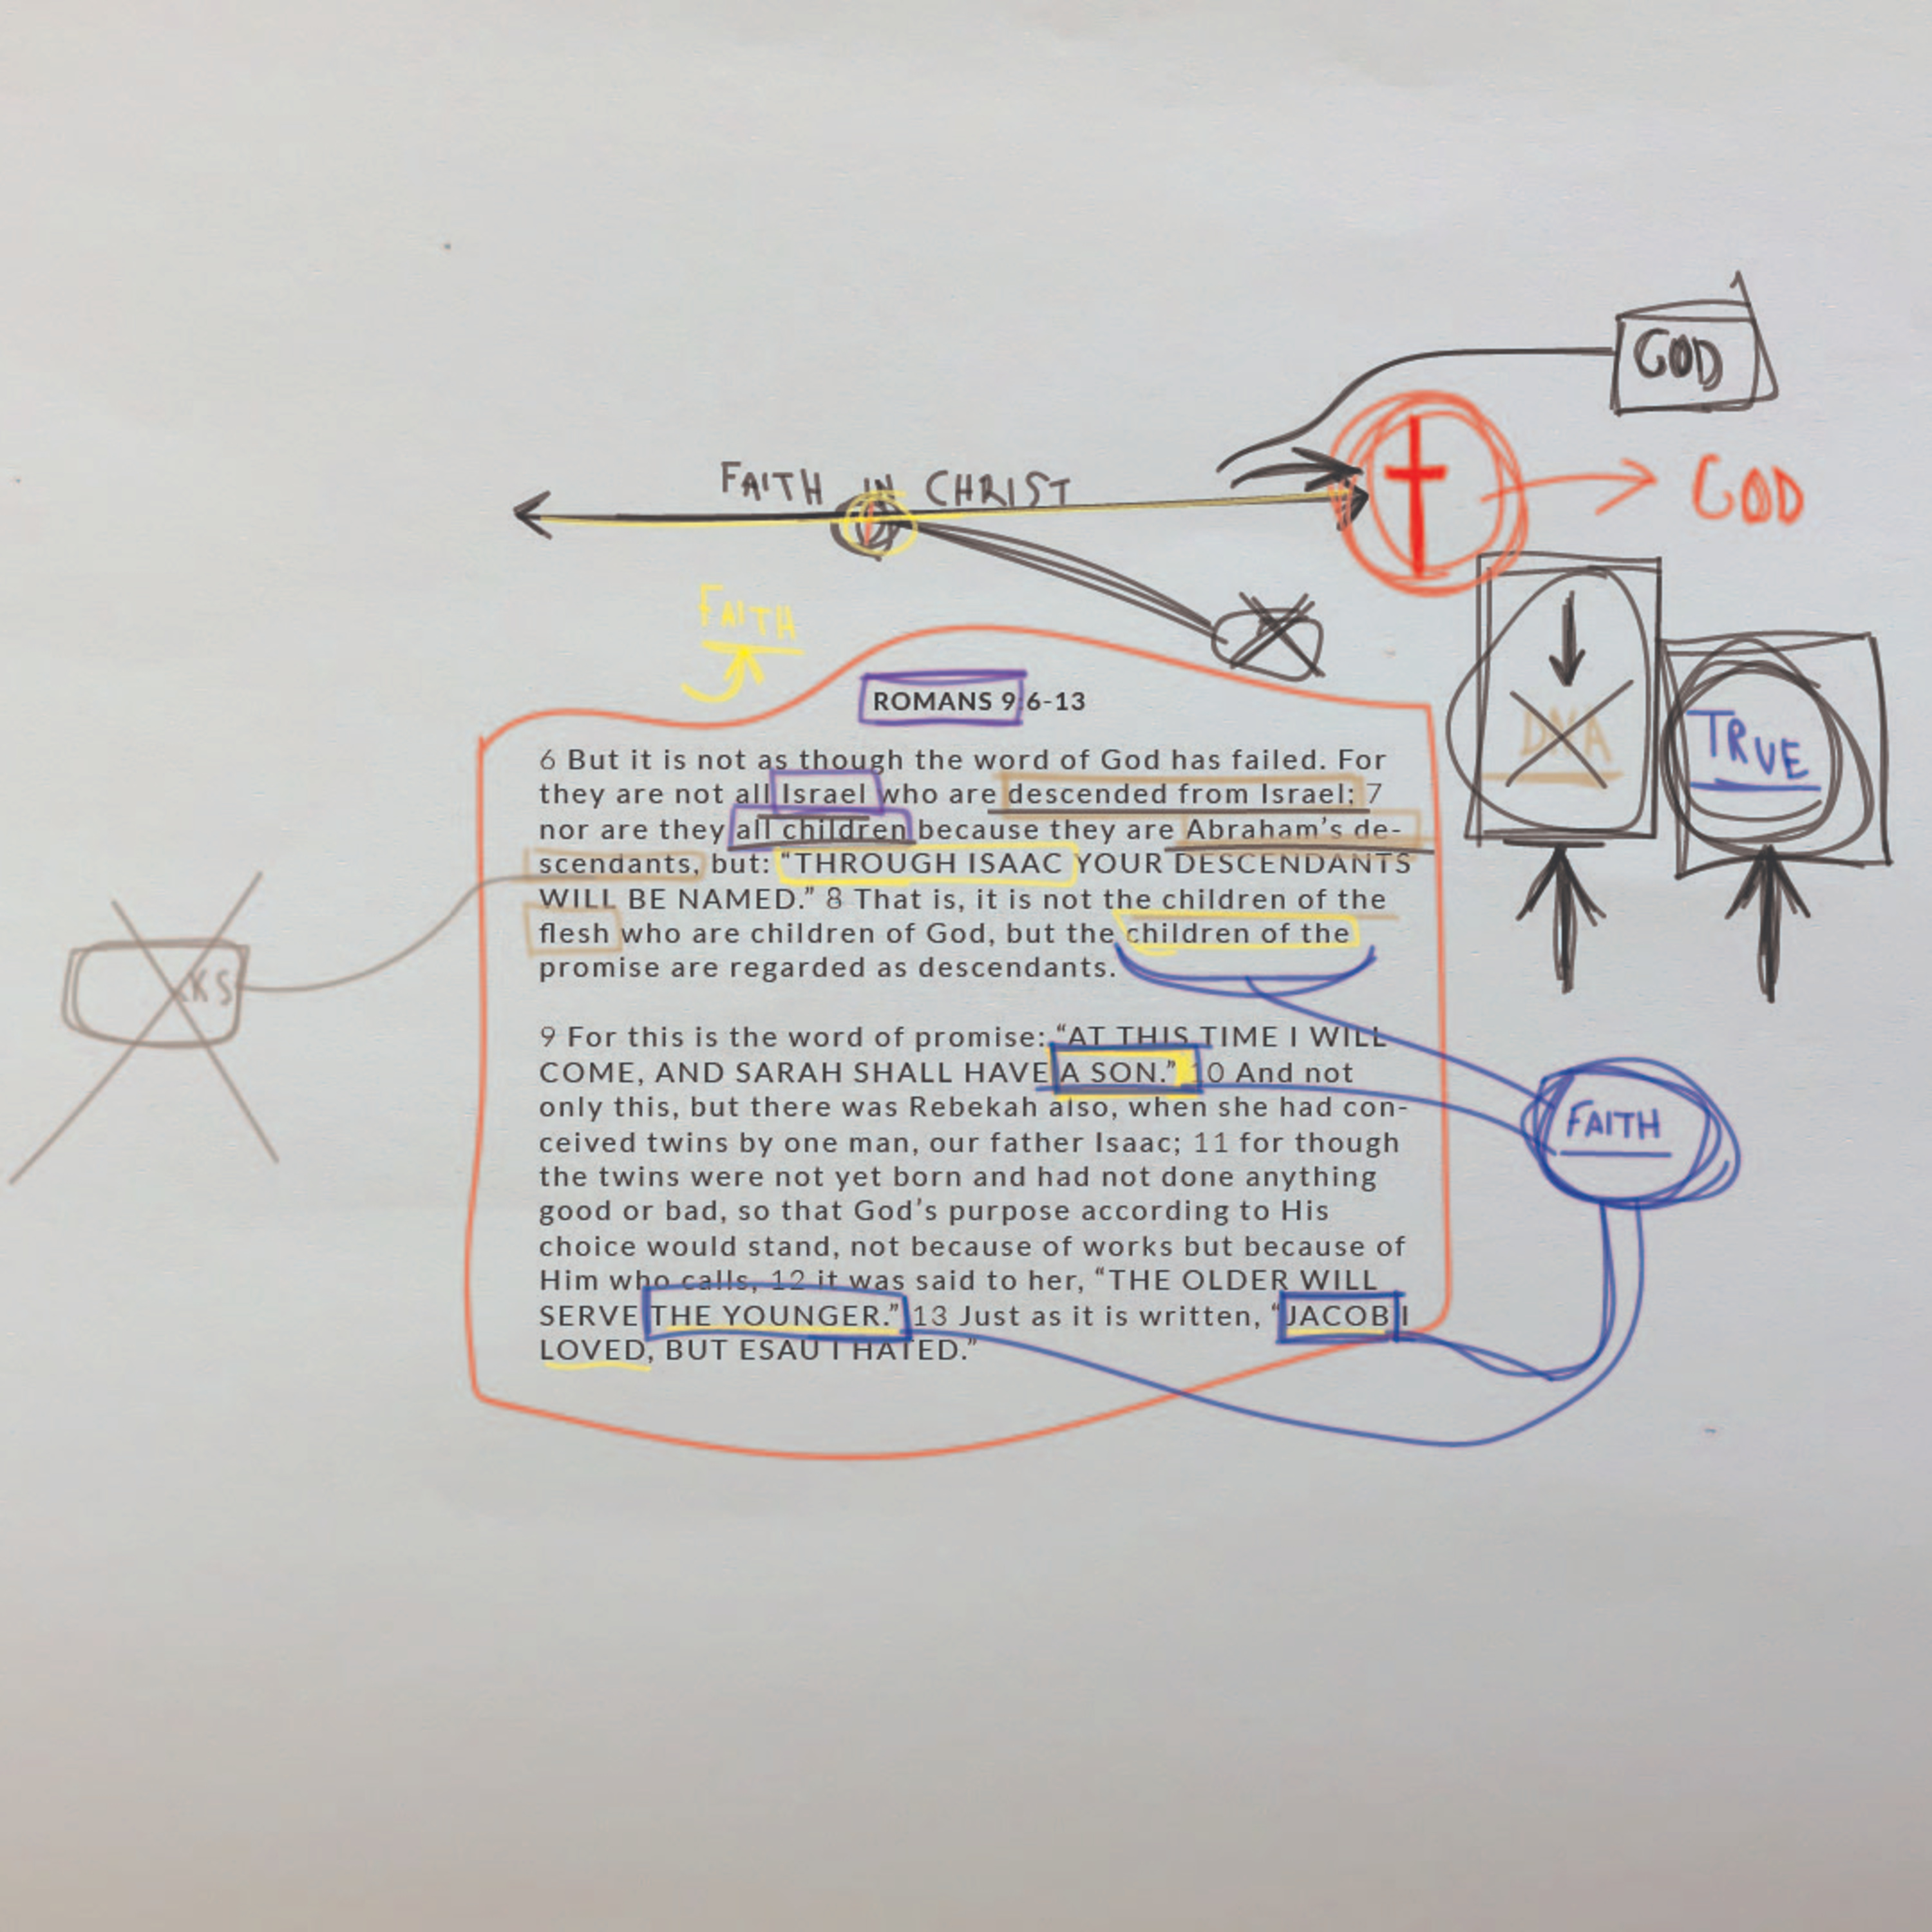 GOD
FAITH IN CHRIST
GOD
FAITH
ROMANS 9:6-13
DNA
TRUE
6 But it is not as though the word of God has failed. For
they are not all Israel who are descended from Israel; 7
nor are they all children because they are Abraham’s de-
scendants, but: “THROUGH ISAAC YOUR DESCENDANTS
WILL BE NAMED.” 8 That is, it is not the children of the
flesh who are children of God, but the children of the
promise are regarded as descendants.
9 For this is the word of promise: “AT THIS TIME I WILL
COME, AND SARAH SHALL HAVE A SON.” 10 And not
only this, but there was Rebekah also, when she had con-
ceived twins by one man, our father Isaac; 11 for though
the twins were not yet born and had not done anything
good or bad, so that God’s purpose according to His
choice would stand, not because of works but because of
Him who calls, 12 it was said to her, “THE OLDER WILL
SERVE THE YOUNGER.” 13 Just as it is written, “JACOB I
LOVED, BUT ESAU I HATED.”
FAITH